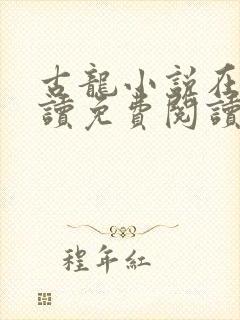 古龍小説在
讀免費閱讀
程年紅